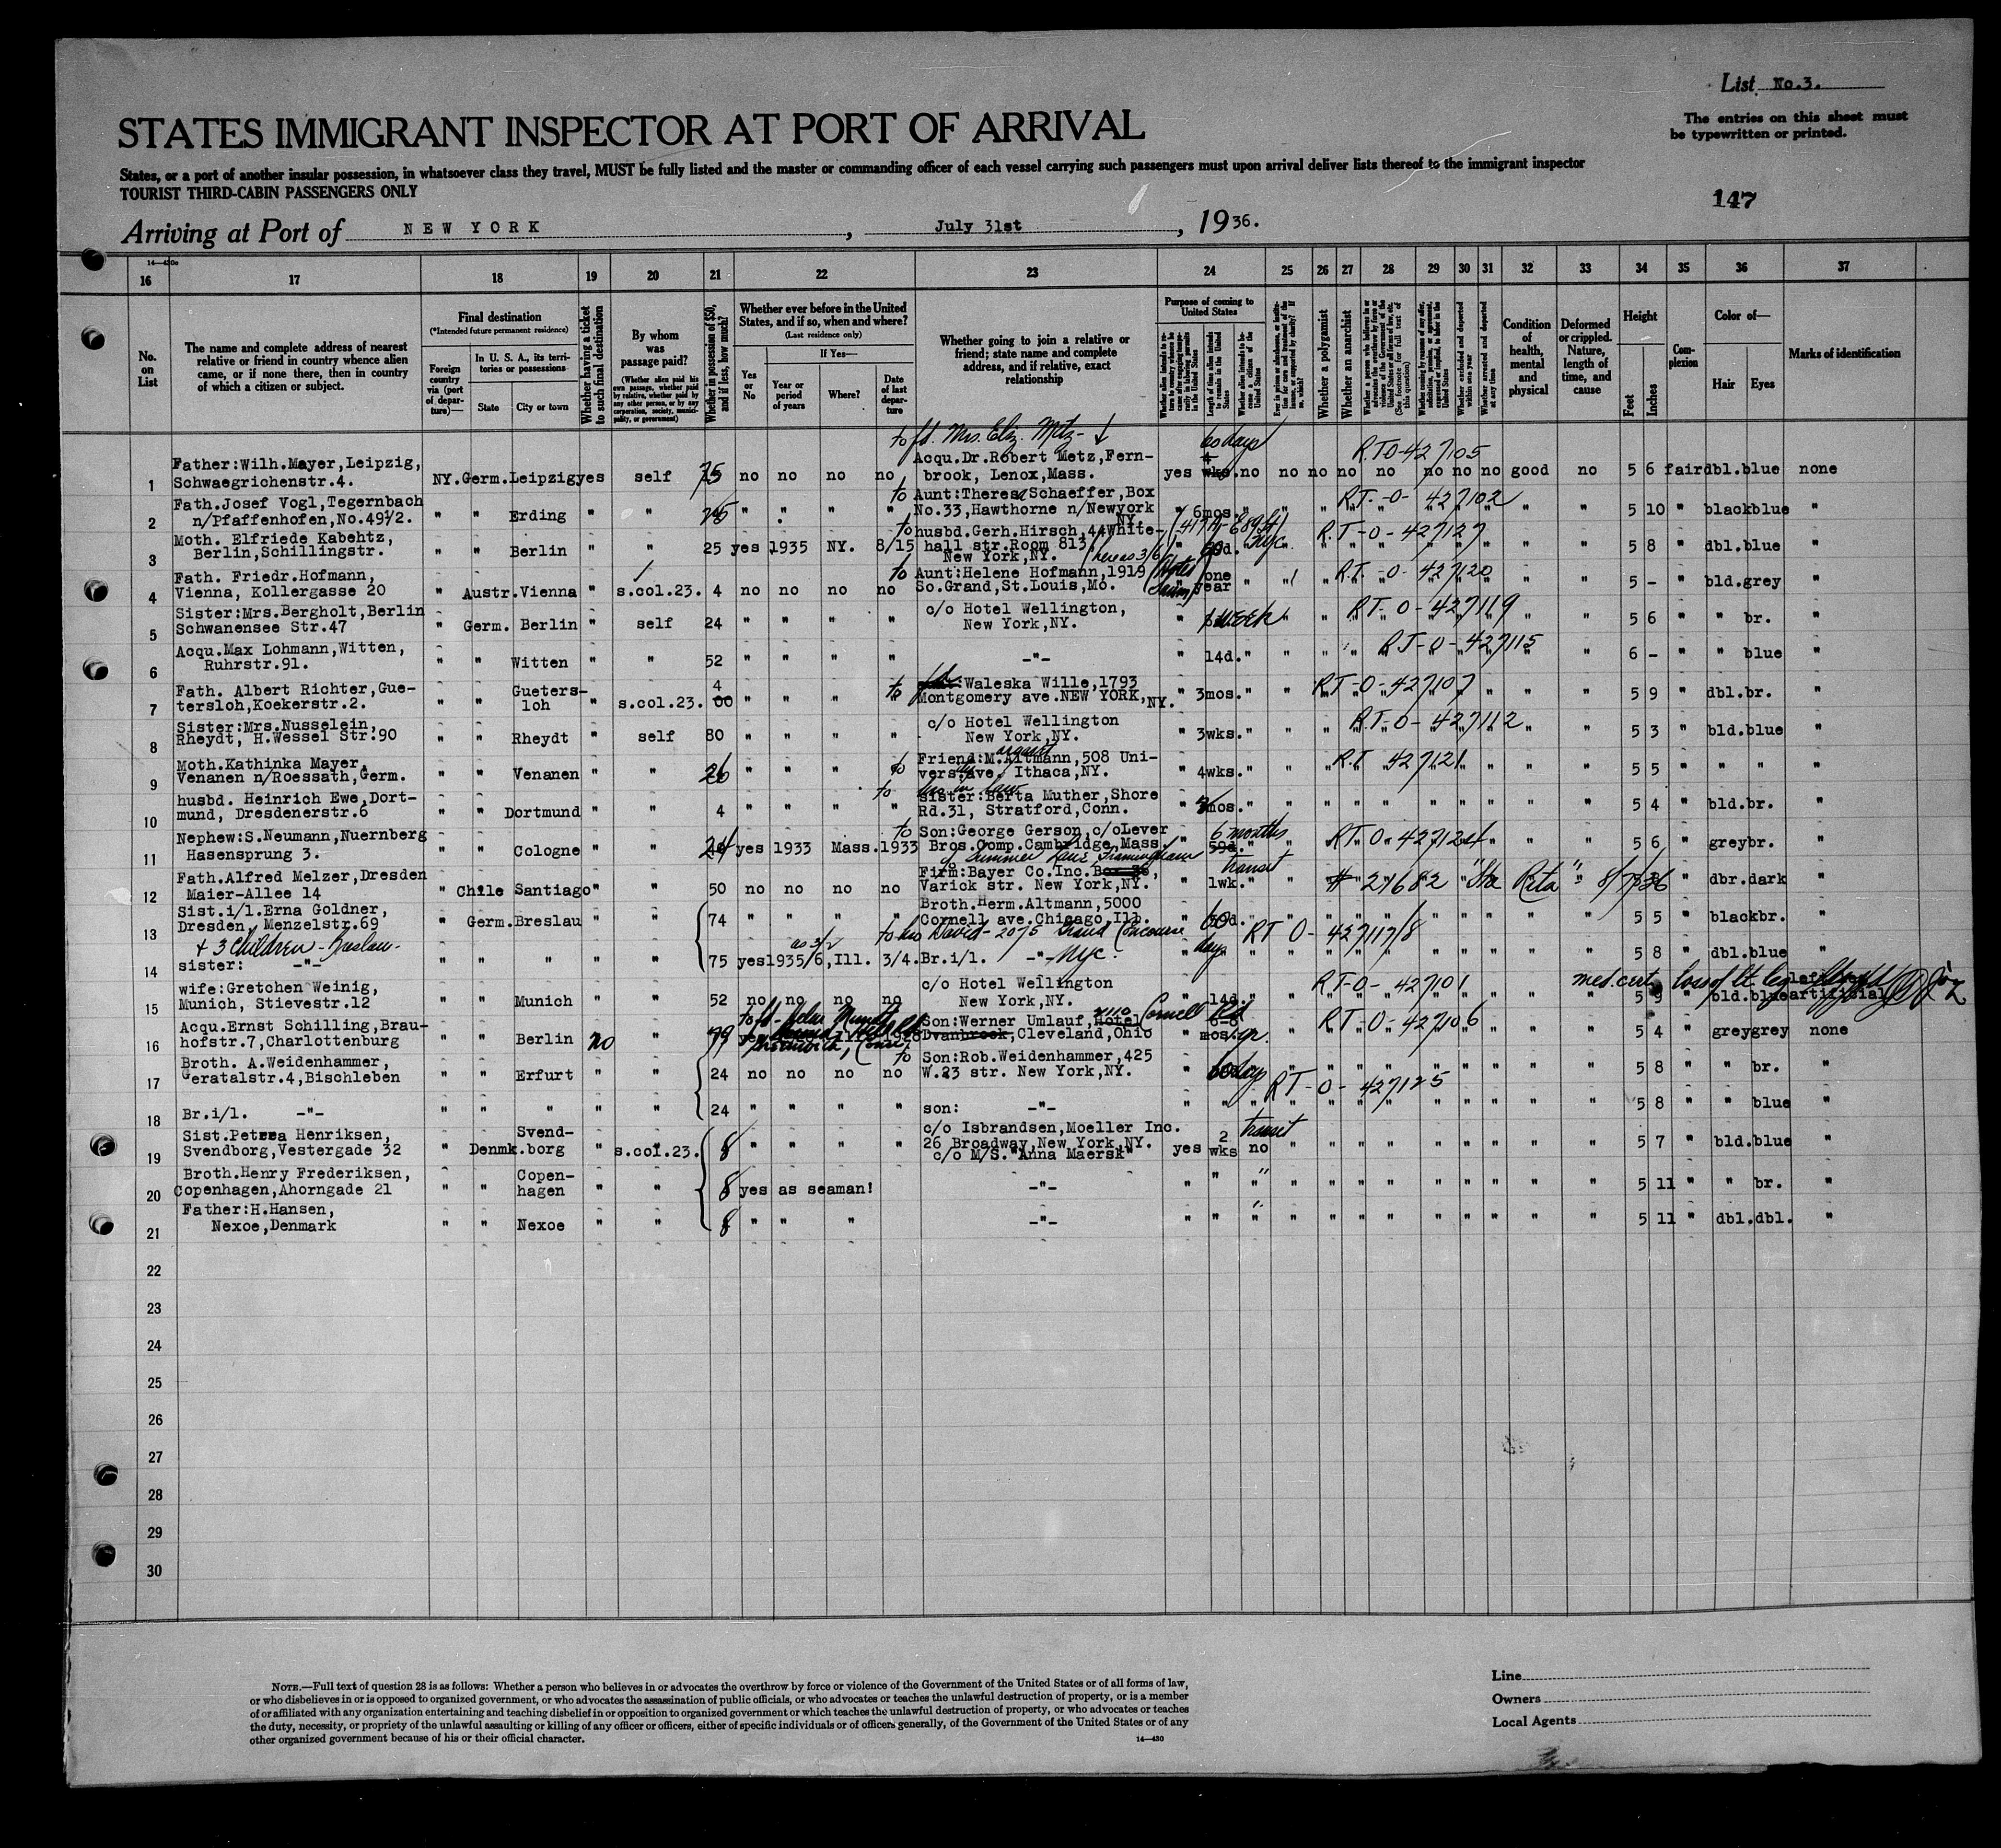 List No.3.
STATES IMMIGRANT INSPECTOR AT PORT OF ARRIVAL
The entries on this sheet must
be typewritten or printed.
States, or a port of another insular possession, in whatsoever class they travel, MUST be fully listed and the master or commanding officer of each vessel carrying such passengers must upon arrival deliver lists thereof to the immigrant inspector
TOURIST THIRD-CABIN PASSENGERS ONLY
147
Arriving at Port of NEW YORK, July 31st, 1936.
16 17 18 19 20 21 22 23 24 25 26 27 28 29 30 31 32 33 34 35 36 37
No. on List
The name and complete address of nearest
relative or friend in country whence alien
came, or if none there, then in country
of which a citizen or subject.
Final destination
(*Intended future permanent residence)
Foreign country via (port of departure)—
In U. S. A., its territories or possessions
State City or town
Whether having a ticket to such final destination
By whom was passage paid?
(Whether alien paid his own passage, whether paid by relative, whether paid by any other person, or by any corporation, society, municipality, or government)
Whether in possession of $50, and if less, how much?
Whether ever before in the United States, and if so, when and where?
(Last residence only)
If Yes—
Yes or No Year or period of years Where? Date of last departure
Whether going to join a relative or
friend; state name and complete
address, and if relative, exact
relationship
Purpose of coming to United States
Length of time alien intends to remain in the United States
Whether a polygamist
Whether an anarchist
Condition of health, mental and physical
Deformed or crippled. Nature, length of time, and cause
Height
Feet Inches
Complexion
Color of—
Hair Eyes
Marks of identification
to fd. Mrs. Eliz. Metz- 60 days RTO-427105
1 Father:Wilh.Mayer,Leipzig, Acqu.Dr.Robert Metz,Fern-
Schwaegrichenstr.4. NY. Germ. Leipzig yes self 75 no no no no brook, Lenox,Mass. yes wks. no no no no no no no no good no 5 6 fair dbl. blue none
2 Fath.Josef Vogl,Tegernbach to Aunt:Theresa Schaeffer,Box RT-0-427102
n/Pfaffenhofen,No.49½. " " Erding " " " " " " No.33,Hawthorne n/Newyork NY. " 6mos. " " 5 10 " black blue "
3 Moth. Elfriede Kabehtz, to husbd.Gerh.Hirsch,44White- RT-0-427127
Berlin,Schillingstr. " " Berlin " " 25 yes 1935 NY. 8/15 hall str.Room 813 New York,NY. 5 8 " dbl. blue "
4 Fath. Friedr.Hofmann, to Aunt:Helene Hofmann,1919 one RT-0-427120
Vienna, Kollergasse 20 " Austr. Vienna " s.col.23. 4 no no no no So.Grand,St.Louis,Mo. year 5 - " bld. grey "
5 Sister:Mrs.Bergholt,Berlin c/o Hotel Wellington, RT-0-427119
Schwanensee Str.47 " Germ. Berlin " self 24 " " " " New York,NY. " week 5 6 " " br. "
6 Acqu.Max Lohmann,Witten, RT-0-427115
Ruhrstr.91. " " Witten " " 52 " " " " -"- " 14d. " " 6 - " " blue "
7 Fath. Albert Richter,Gue- Gueters- 4 to Waleska Wille,1793 RT-0-427107
tersloh,Koekerstr.2. " " loh " s.col.23. " " " Montgomery ave.NEW YORK,NY. " 3mos. " " 5 9 " dbl. br. "
8 Sister:Mrs.Nusselein, c/o Hotel Wellington RT-0-427112
Rheydt, H.Wessel Str.90 " " Rheydt " self 80 " " " " New York,NY. " 3wks. " " 5 3 " bld. blue "
9 Moth.Kathinka Mayer, Friend:M.Altmann,508 Uni- RT 427121
Venanen n/Roessath,Germ. " " Venanen " " 26 " " " to vers.ave. Ithaca,NY. " 4wks. " " 5 5 " " " "
10 husbd. Heinrich Ewe,Dort- to sister:Berta Muther,Shore
mund, Dresdenerstr.6 " " Dortmund " " 4 " " " " Rd.31, Stratford,Conn. " mos. " " 5 4 " bld. br. "
11 Nephew:S.Neumann,Nuernberg to Son:George Gerson,c/oLever 6 months RT-0-427124
Hasensprung 3. " " Cologne " " 24 yes 1933 Mass. 1933 Bros.Comp.Cambridge,Mass. 59d. 5 6 " grey br. "
12 Fath.Alfred Melzer,Dresden Firm:Bayer Co.Inc. transit
Maier-Allee 14 " Chile Santiago " " 50 no no no no Varick str. New York,NY. " 1wk. # 21682 "Sta Rita" 8/7/36 " dbr. dark "
13 Sist.i/l.Erna Goldner, Broth.Herm.Altmann,5000
Dresden, Menzelstr.69 " Germ. Breslau " " 74 " " " " Cornell ave.Chicago,Ill. 5 5 " black br. "
+ 3 children - Breslau- to bro David - 2075 Grand Concourse NYC. days RT 0-427117/8
14 sister: -"- " " " " " 75 yes 1935/6, Ill. 3/4. Br.i/l. -"- 5 8 " dbl. blue
15 wife:Gretchen Weinig, c/o Hotel Wellington RT-0-427101 med. cert. loss of lt leg
Munich, Stievestr.12 " " Munich " " 52 no no no no New York,NY. " 14d. 5 9 " bld. blue artificial
16 Acqu.Ernst Schilling,Brau- Son:Werner Umlauf, Hotel Cornell Rd RT-0-427106
hofstr.7,Charlottenburg " " Berlin no " 79 Cleveland,Ohio mos. yr. 5 4 " grey grey none
17 Broth. A.Weidenhammer, to Son:Rob.Weidenhammer,425
Geratalstr.4,Bischleben " " Erfurt " " 24 no no no no W.23 str. New York,NY. " 60 days 5 8 " " br. "
RT-0-427125
18 Br.i/l. -"- " " " " " 24 " " " " son: -"- 5 8 " " blue "
19 Sist.Petrea Henriksen, Svend- c/o Isbrandsen,Moeller Inc. transit
Svendborg,Vestergade 32 " Denmk. borg " s.col.23. 8 " " " " 26 Broadway,New York,NY. yes 2 wks no 5 7 " bld. blue "
c/o M/S."Anna Maersk"
20 Broth.Henry Frederiksen, Copen-
Copenhagen,Ahorngade 21 " " hagen " " 8 yes as seaman! -"- " " " 5 11 " " br. "
21 Father:H.Hansen,
Nexoe,Denmark " " Nexoe " " 8 " " " -"- " " " 5 11 " dbl. dbl. "
22
23
24
25
26
27
28
29
30
NOTE.—Full text of question 28 is as follows: Whether a person who believes in or advocates the overthrow by force or violence of the Government of the United States or of all forms of law,
or who disbelieves in or is opposed to organized government, or who advocates the assassination of public officials, or who advocates or teaches the unlawful destruction of property, or is a member
of or affiliated with any organization entertaining and teaching disbelief in or opposition to organized government or which teaches the unlawful destruction of property, or who advocates or teaches
the duty, necessity, or propriety of the unlawful assaulting or killing of any officer or officers, either of specific individuals or of officers generally, of the Government of the United States or of any
other organized government because of his or their official character.
14—430
Line
Owners
Local Agents